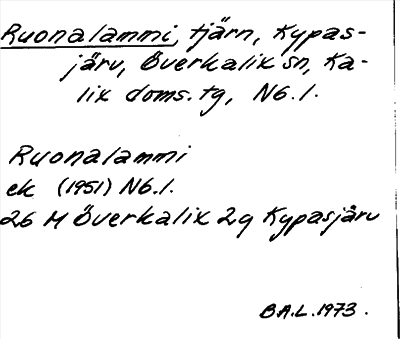 Ruonalammi, tjärn, Kypas-
järv, Överkalix sn, Ka-
lix doms. tg, Nb.l.
Ruonalammi
ek (1951) Nb.l.
26 M Överkalix 2g Kypasjärv
B.A.L. 1973.